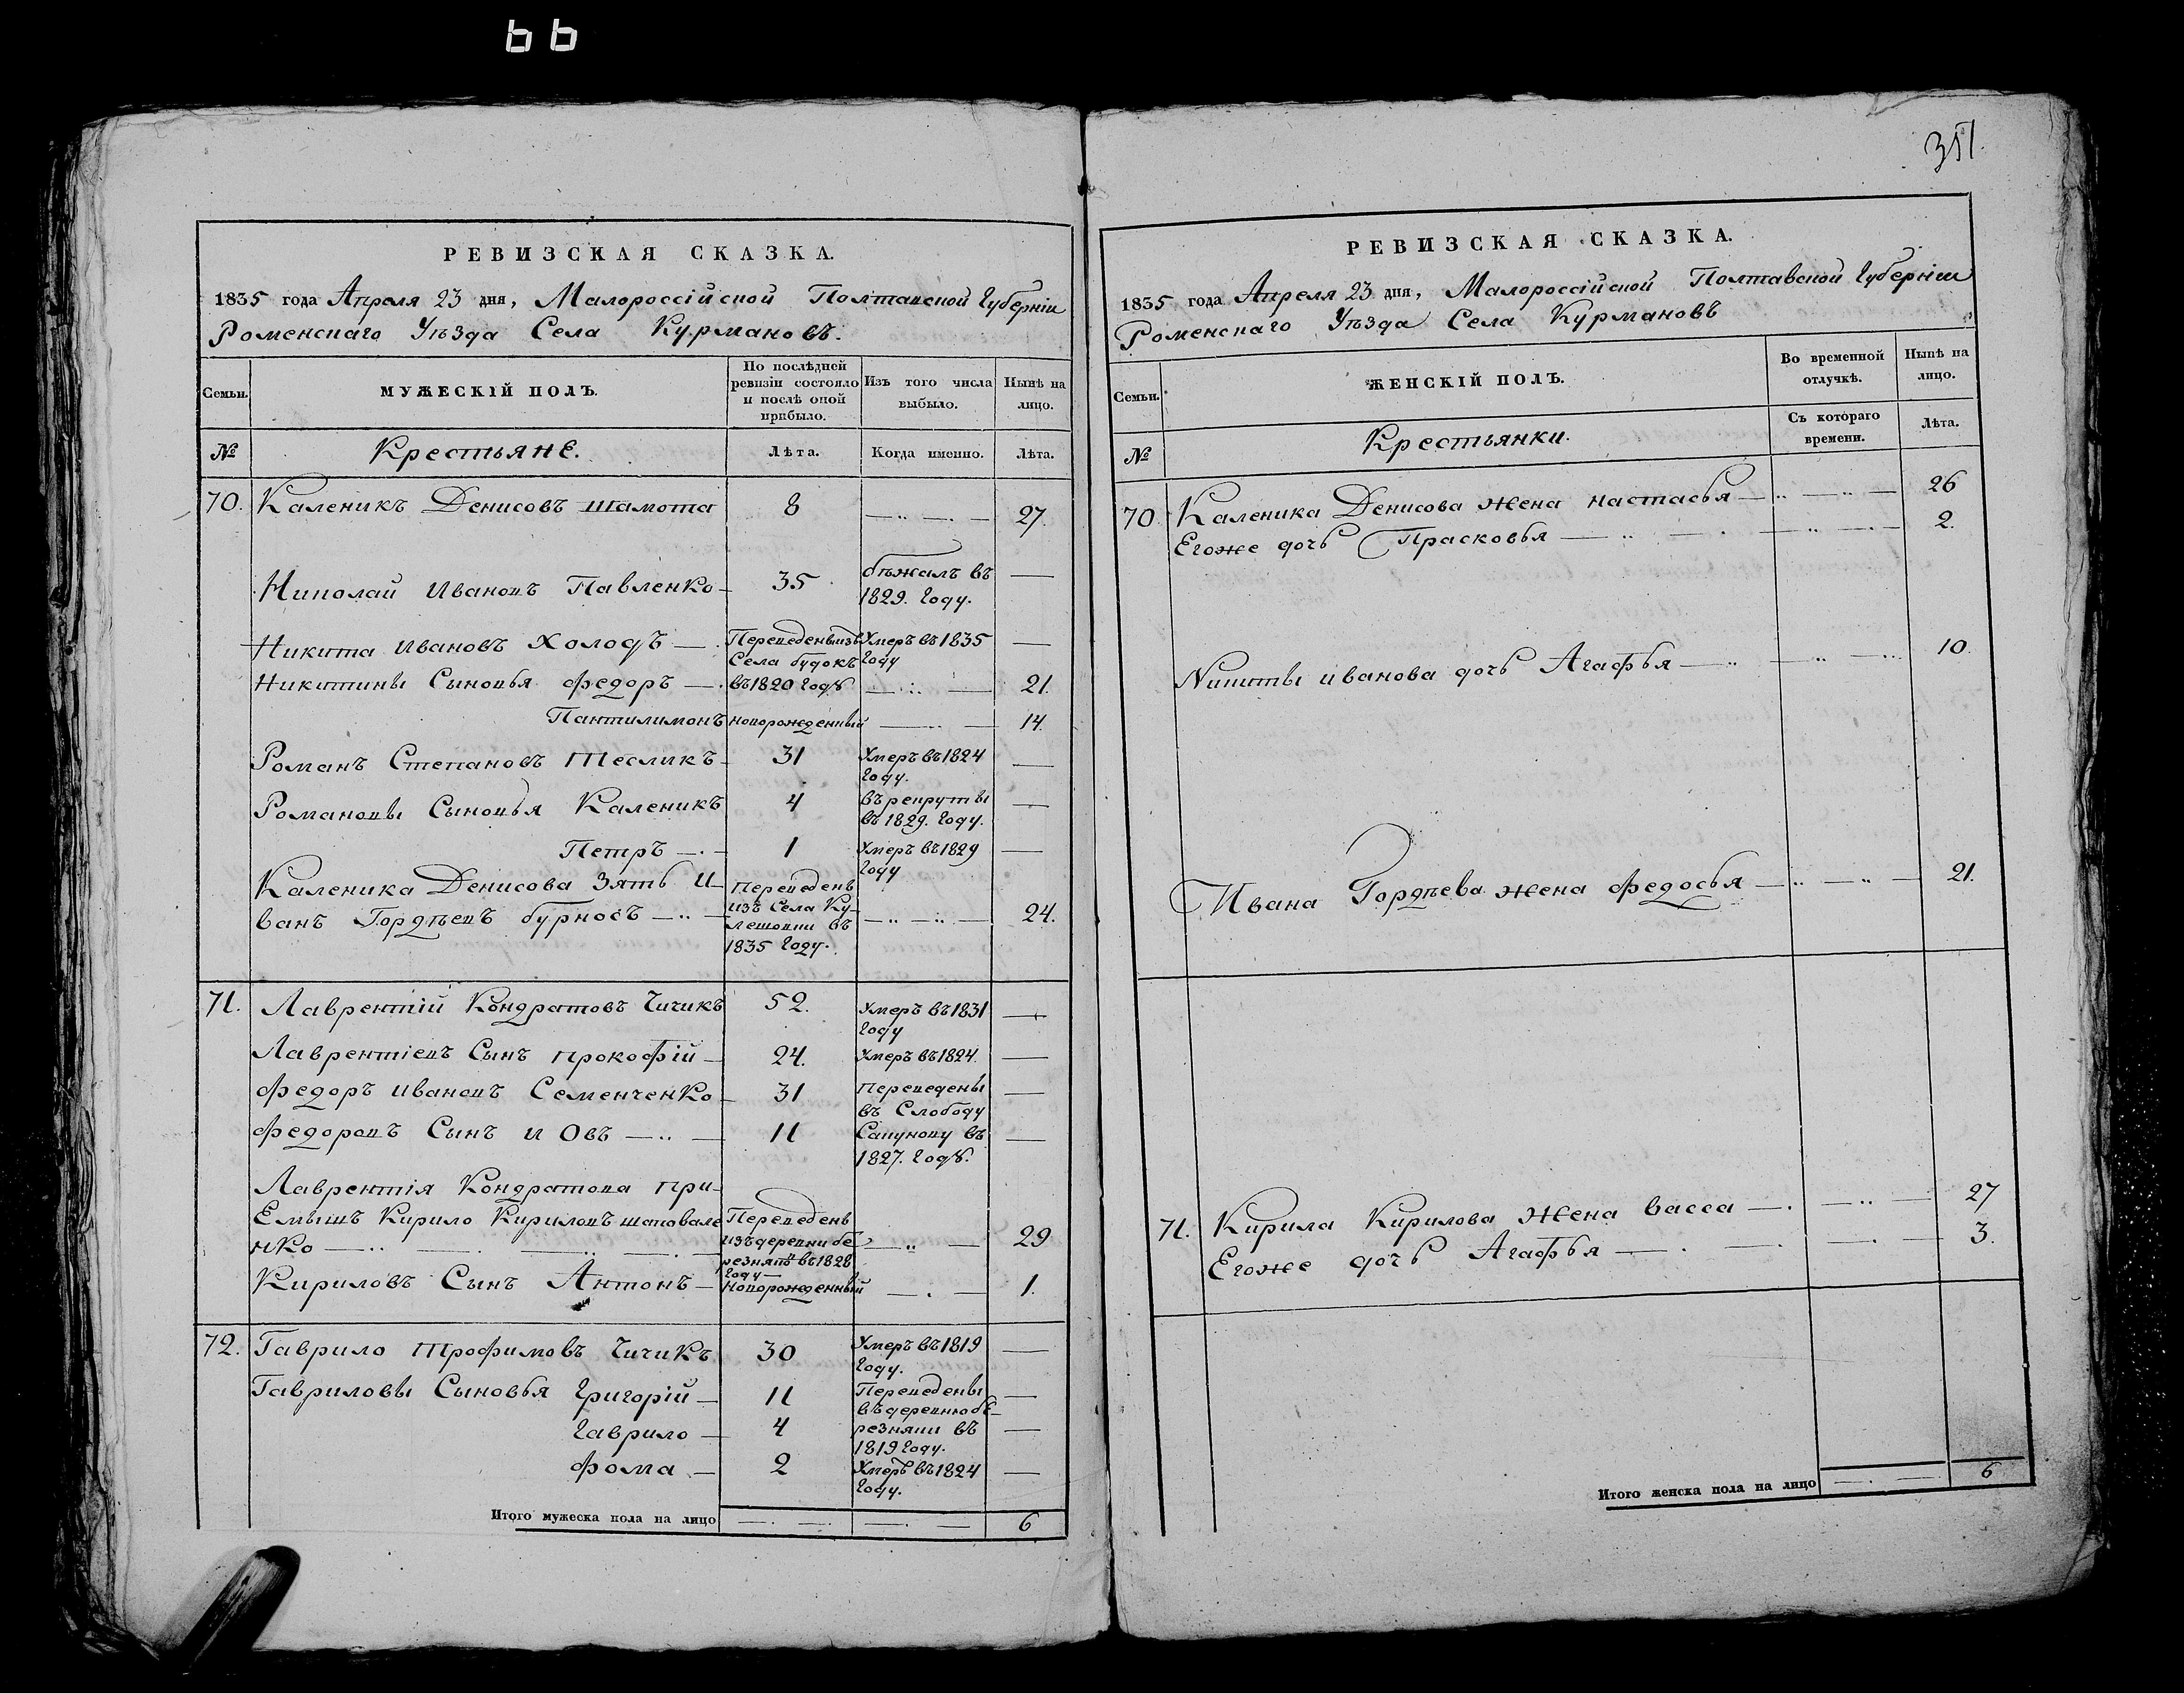 66
351.
РЕВИЗСКАЯ СКАЗКА.
1835 года Апреля 23 дня, Малороссійской Полтавской Губерніи
Роменскаго Уѣзда Села Курмановъ.
Семьи.
МУЖЕСКІЙ ПОЛЪ.
По послѣдней ревизіи состояло и послѣ оной прибыло.
Изъ того числа выбыло.
Нынѣ на лицо.
№
Крестьяне.
Лѣта.
Когда именно.
Лѣта.
70. Каленикъ Денисовъ Шамота 8 27.
Николай Ивановъ Павленко 35 бѣжалъ въ
1829. Году.
Никита Ивановъ Холодъ Переведенъ изъ Умеръ въ 1835
Села будокъ Году
Никитины Сыновья Федоръ въ 1820 Году 21.
Пантилимонъ новорожденный 14.
Романъ Степановъ Тесликъ 31 Умеръ въ 1824
Году.
Романовы Сыновья Каленикъ 4 въ рекруты
въ 1829. Году.
Петръ 1 Умеръ въ 1829
Году
Каленика Денисова Зять И- Переведенъ
ванъ Гордѣевъ бурносъ изъ Села Ку- 24.
лешовки въ
1835 Году.
71. Лаврентій Кондратовъ Чичикъ 52. Умеръ въ 1831
Году
Лаврентіевъ Сынъ Прокофій 24. Умеръ въ 1824.
Федоръ Ивановъ Семенченко 31 Переведены
въ Слободу
Федоровъ Сынъ Иовъ 11 Сапунову въ
1827. Году.
Лаврентія Кондратова при-
Емышъ Кирило Кириловъ шаповале Переведенъ
нко изъ деревни бе 29
резнякъ въ 1828
Году
Кириловъ Сынъ Антонъ Новорожденный 1.
72. Гаврило Трофимовъ Чичикъ 30 Умеръ въ 1819
Году.
Гавриловы Сыновья Григорій 11 Переведены
въ деревню бе-
Гаврило 4 резняки въ
1819 Году.
Фома 2 Умеръ въ 1824
Году.
Итого мужеска пола на лицо 6
РЕВИЗСКАЯ СКАЗКА.
1835 года Апреля 23 дня, Малороссійской Полтавской Губерніи
Роменскаго Уѣзда Села Курмановъ
Семьи.
ЖЕНСКІЙ ПОЛЪ.
Во временной отлучкѣ.
Нынѣ на лицо.
№
Крестьянки.
Съ котораго времени.
Лѣта.
70 Каленика Денисова жена настасья 26
Егоже дочь Прасковья 2.
Никиты иванова дочь Агафья 10.
Ивана Гордѣева жена федосья 21.
71. Кирила Кирилова жена васса 27
Егоже дочь Агафья 3.
Итого женска пола на лицо 6